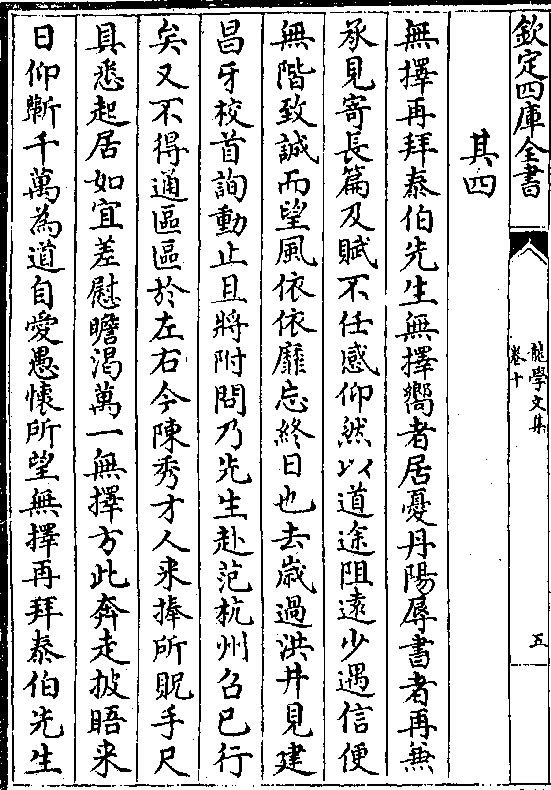 欽定四庫全書
龍學文集
卷十
五
其四
無擇再拜泰伯先生無擇嚮者居憂丹陽辱書者再兼
承見寄長篇及賦不任感仰然以道途阻遠少遇信便
無階致誠而望風依依靡忘終日也去歲過洪井見建
昌牙校首詢動止且將附問乃先生赴范杭州召已行
矣又不得通區區於左右今陳秀才人来捧所貺手尺
具悉起居如宜差慰瞻渇萬一無擇方此奔走披晤来
日仰慚千萬為道自愛愚懐所望無擇再拜泰伯先生